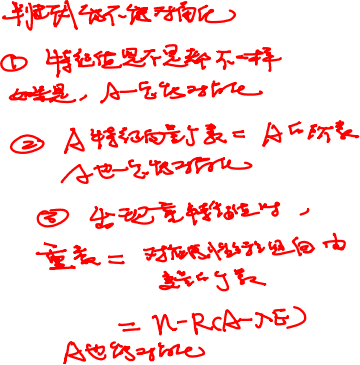 判断A能不能对角化
① 特征值是不是都不一样
如果是，A一定能对角化
② A特征向量个数 = A的阶数
A也一定能对角化
③ 出现重特征值时，
重数 = 对应齐次方程组自由
变量的个数
= n-R(A-λE)
A也能对角化